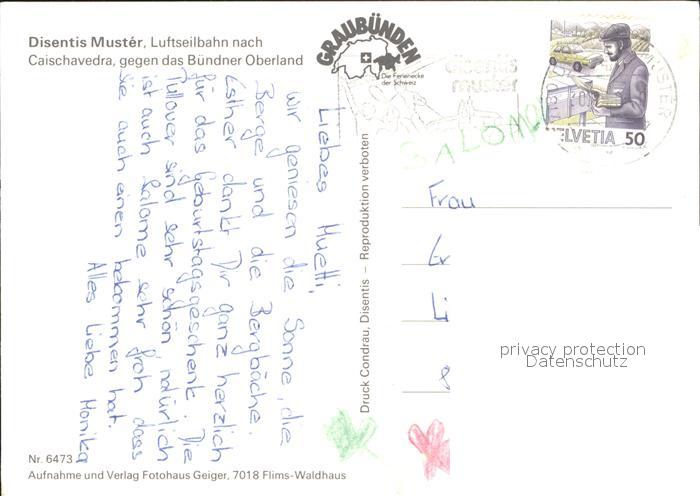 Disentis Mustér, Luftseilbahn nach
Caischavedra, gegen das Bündner Oberland
GRAUBÜNDEN
Die Ferienecke
der Schweiz
disentis
muster
HELVETIA 50
SALOME
Liebes Muetti,
wir geniesen die Sonne, die
Berge und die Bergbäche.
Esther dankt Dir ganz herzlich
für das Geburtstagsgeschenk. Die
Pullover sind sehr schön, natürlich
ist auch Salome sehr froh dass
sie auch einen bekommen hat.
Alles Liebe Monika
Druck Condrau, Disentis – Reproduktion verboten
Frau
Er
Li
8
privacy protection
Datenschutz
Nr. 6473
Aufnahme und Verlag Fotohaus Geiger, 7018 Flims-Waldhaus